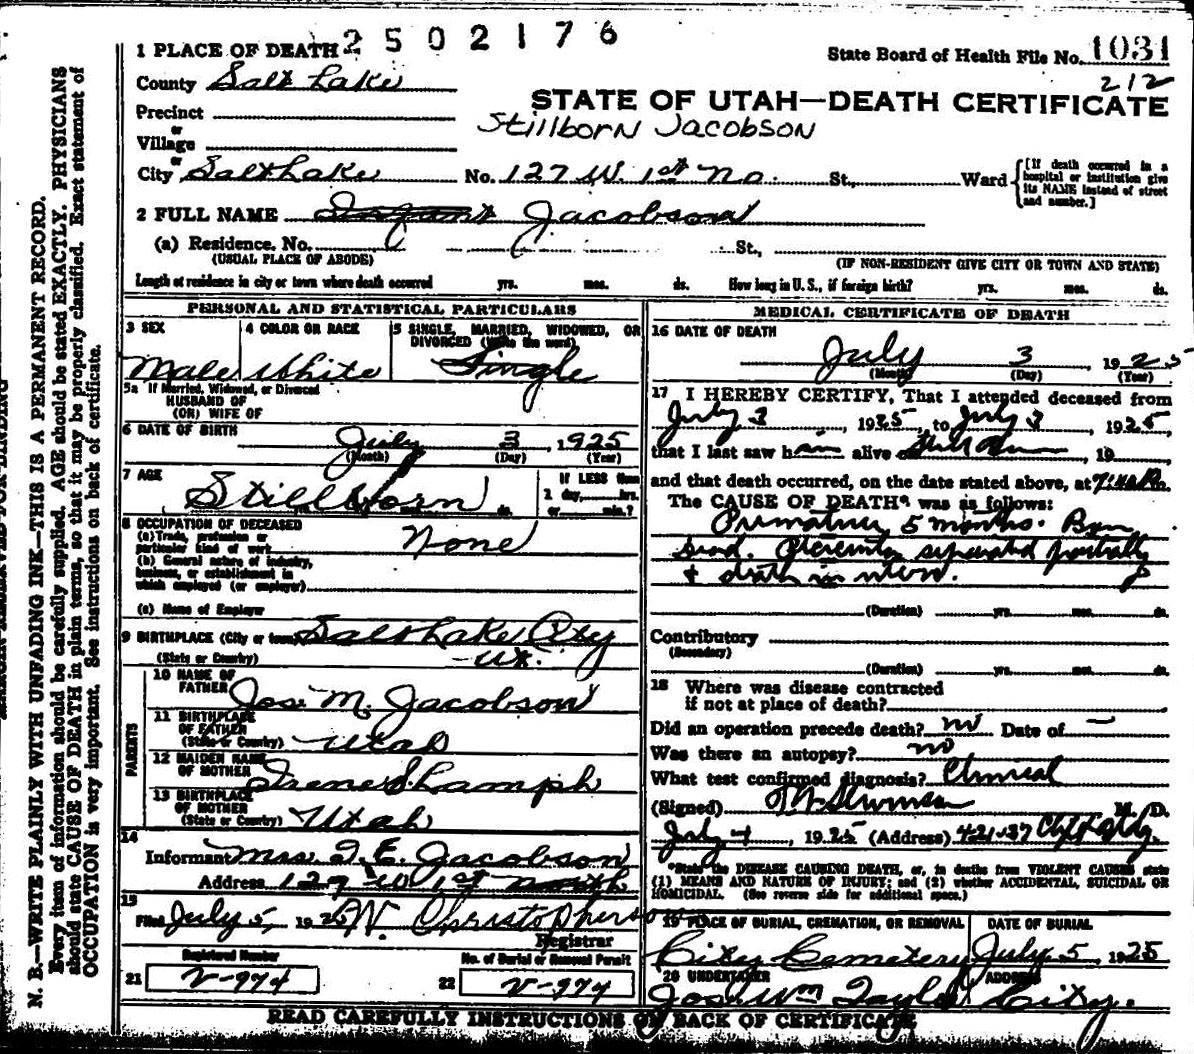 2502176
1 PLACE OF DEATH
State Board of Health File No. 1031
212
County Salt Lake
STATE OF UTAH—DEATH CERTIFICATE
Precinct
Stillborn Jacobson
or
Village
or
City Salt Lake No. 127 W. 1st No. St., Ward
[If death occurred in a
hospital or institution give
its NAME instead of street
and number.]
2 FULL NAME Infant Jacobson
(a) Residence. No. St.,
(USUAL PLACE OF ABODE) (IF NON-RESIDENT GIVE CITY OR TOWN AND STATE)
Length of residence in city or town where death occurred yrs. mos. ds. How long in U. S., if foreign birth? yrs. mos. ds.
PERSONAL AND STATISTICAL PARTICULARS
3 SEX 4 COLOR OR RACE 5 SINGLE, MARRIED, WIDOWED, OR
DIVORCED (Write the word)
Male White Single
5a If Married, Widowed, or Divorced
HUSBAND OF
(OR) WIFE OF
6 DATE OF BIRTH
July 3, 1925
(Month) (Day) (Year)
7 AGE If LESS than
Stillborn ds. 1 day, hrs.
or min.?
8 OCCUPATION OF DECEASED
(a) Trade, profession or
particular kind of work None
(b) General nature of industry,
business, or establishment in
which employed (or employer)
(c) Name of Employer
9 BIRTHPLACE (City or town) Salt Lake City
(State or Country) Ut.
PARENTS
10 NAME OF
FATHER Jos. M. Jacobson
11 BIRTHPLACE
OF FATHER
(State or Country) Utah
12 MAIDEN NAME
OF MOTHER Irene S. Lamph
13 BIRTHPLACE
OF MOTHER
(State or Country) Utah
14
Informant Mrs. I. E. Jacobson
Address 129 W 1st North
15
Filed July 5, 1925 W. Christopherson
Registrar
Registered Number No. of Burial or Removal Permit
21 V-974 22 V-974
MEDICAL CERTIFICATE OF DEATH
16 DATE OF DEATH
July 3 1925
(Month) (Day) (Year)
17 I HEREBY CERTIFY, That I attended deceased from
July 3, 1925, to July 3, 1925,
that I last saw him alive on Still Born, 19
and that death occurred, on the date stated above, at
The CAUSE OF DEATH* was as follows:
Premature 5 months. Born
dead. Placenta separated partially
& death in utero.
(Duration) yrs. mos. ds.
Contributory
(Secondary)
(Duration) yrs. mos. ds.
18 Where was disease contracted
if not at place of death?
Did an operation precede death? no Date of —
Was there an autopsy? no
What test confirmed diagnosis? Clinical
(Signed) M. D.
July 4, 1925 (Address) 421-37 Clift Bldg.
*State the DISEASE CAUSING DEATH, or, in deaths from VIOLENT CAUSES state
(1) MEANS AND NATURE OF INJURY; and (2) whether ACCIDENTAL, SUICIDAL OR
HOMICIDAL. (See reverse side for additional space.)
19 PLACE OF BURIAL, CREMATION, OR REMOVAL DATE OF BURIAL
City Cemetery July 5, 1925
20 UNDERTAKER ADDRESS
Jos. Wm Taylor City.
READ CAREFULLY INSTRUCTIONS ON BACK OF CERTIFICATE
N. B.—WRITE PLAINLY WITH UNFADING INK—THIS IS A PERMANENT RECORD.
Every item of information should be carefully supplied. AGE should be stated EXACTLY. PHYSICIANS
should state CAUSE OF DEATH in plain terms, so that it may be properly classified. Exact statement of
OCCUPATION is very important. See instructions on back of certificate.